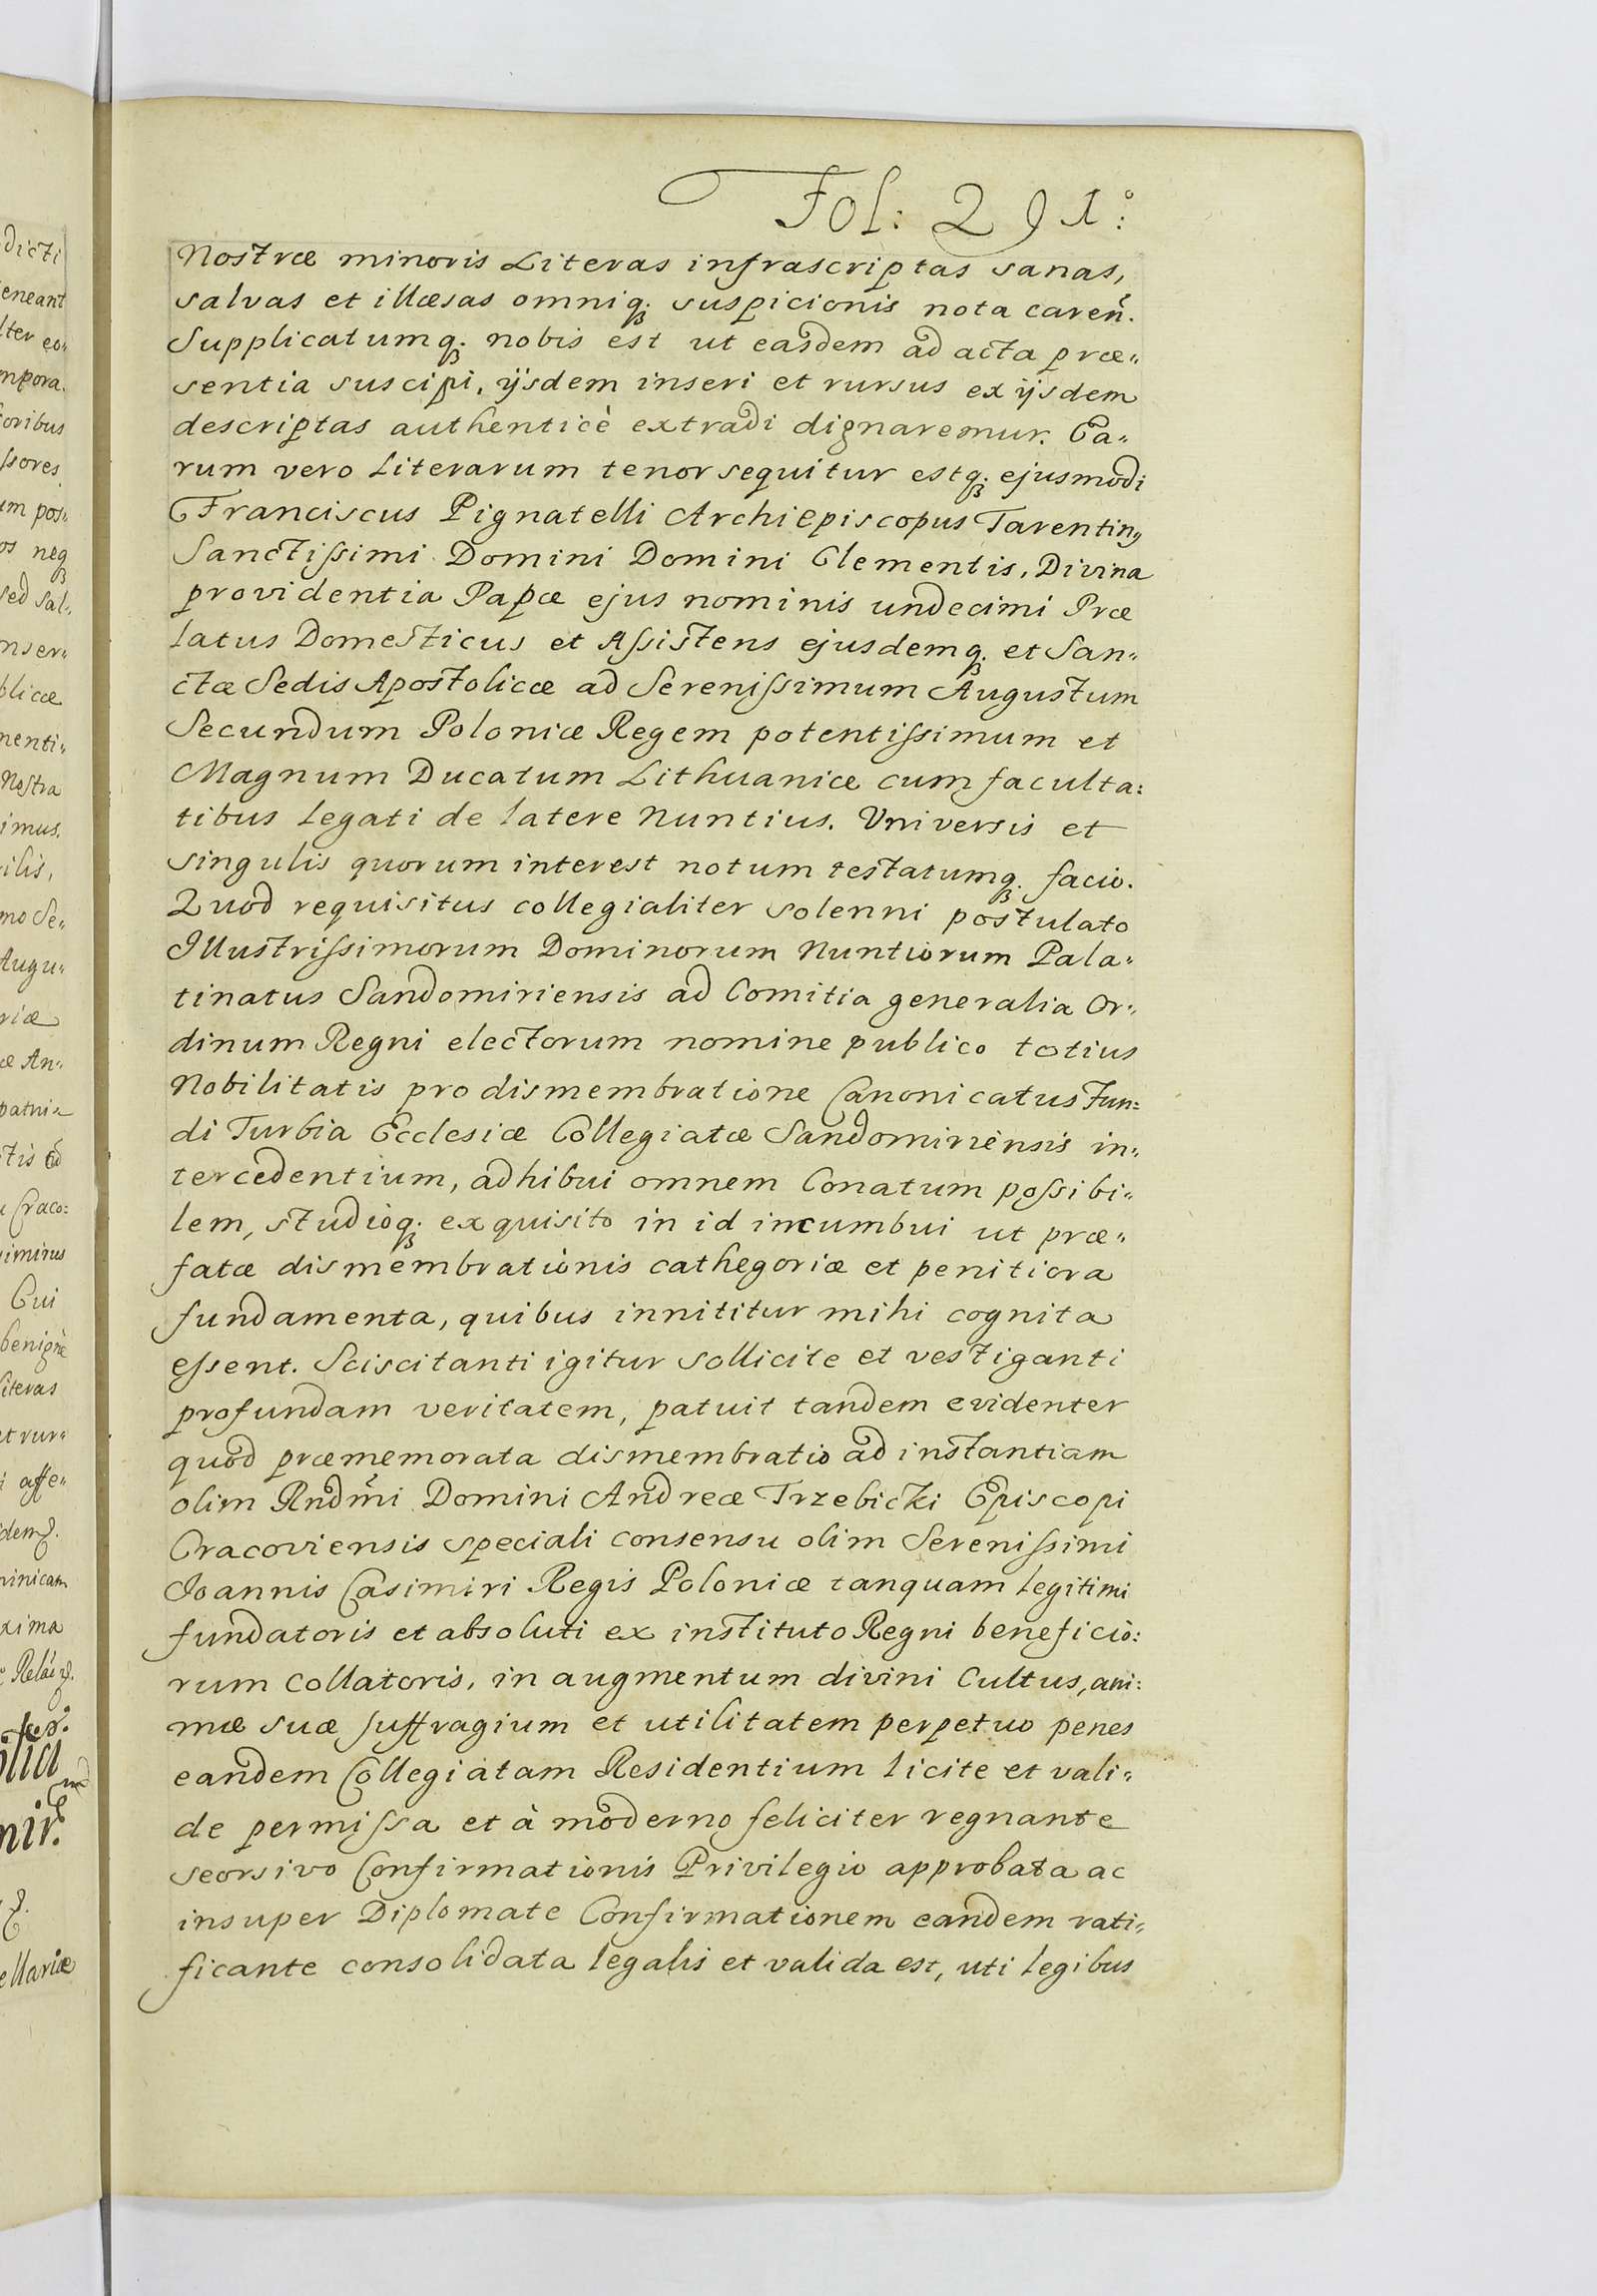 Fol: 291º:
Nostræ minoris Literas infrascriptas sanas,
salvas et illæsas omniq; suspicionis nota careñ.
Supplicatumq; nobis est ut easdem ad acta præ„
sentia suscipi, ijsdem inseri et rursus ex ijsdem
descriptas authenticè extradi dignaremur. Ea„
rum vero Literarum tenor sequitur estq; ejusmodi
Franciscus Pignatelli Archiepiscopus Tarentinꝰ
Sanctissimi Domini Domini Clementis, Divina
providentia Papæ ejus nominis undecimi Præ
latus Domesticus et Assistens ejusdemq; et San„
ctæ Sedis Apostolicæ ad Serenissimum Augustum
Secundum Poloniæ Regem potentissimum et
Magnum Ducatum Lithuaniæ cum faculta:
tibus Legati de latere Nuntius. Universis et
singulis quorum interest notum testatumq; facio.
Quod requisitus collegialiter solenni postulato
Illustrissimorum Dominorum Nuntiorum Pala„
tinatus Sandomiriensis ad Comitia generalia Or„
dinum Regni electorum nomine publico totius
Nobilitatis pro dismembratione Canonicatus Fun:
di Turbia Ecclesiæ Collegiatæ Sandomiriensis in„
tercedentium, adhibui omnem Conatum possibi„
lem, studioq; exquisito in id incumbui ut præ„
fatæ dismembrationis cathegoriæ et penitiora
fundamenta, quibus innititur mihi cognita
essent. Sciscitanti igitur sollicite et vestiganti
profundam veritatem, patuit tandem evidenter
quod præmemorata dismembratio ad instantiam
olim Rndm̃i Domini Andreæ Trzebicki Episcopi
Cracoviensis speciali consensu olim Serenissimi
Joannis Casimiri Regis Poloniæ tanquam legitimi
fundatoris et absoluti ex instituto Regni beneficio:
rum Collatoris, in augmentum divini Cultus, ani:
mæ suæ suffragium et utilitatem perpetuo penes
eandem Collegiatam Residentium licite et vali„
de permissa et à moderno feliciter regnante
seorsivo Confirmationis Privilegio approbata ac
insuper Diplomate Confirmationem eandem rati„
ficante consolidata legalis et valida est, uti legibus